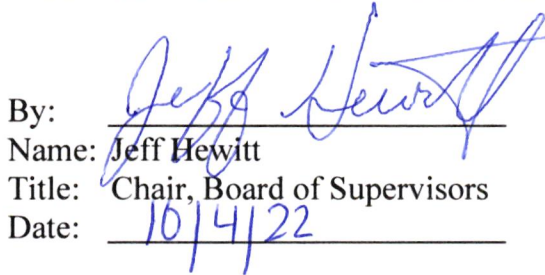 By: Jeff Hewitt
Name: Jeff Hewitt
Title: Chair, Board of Supervisors
Date: 10/4/22